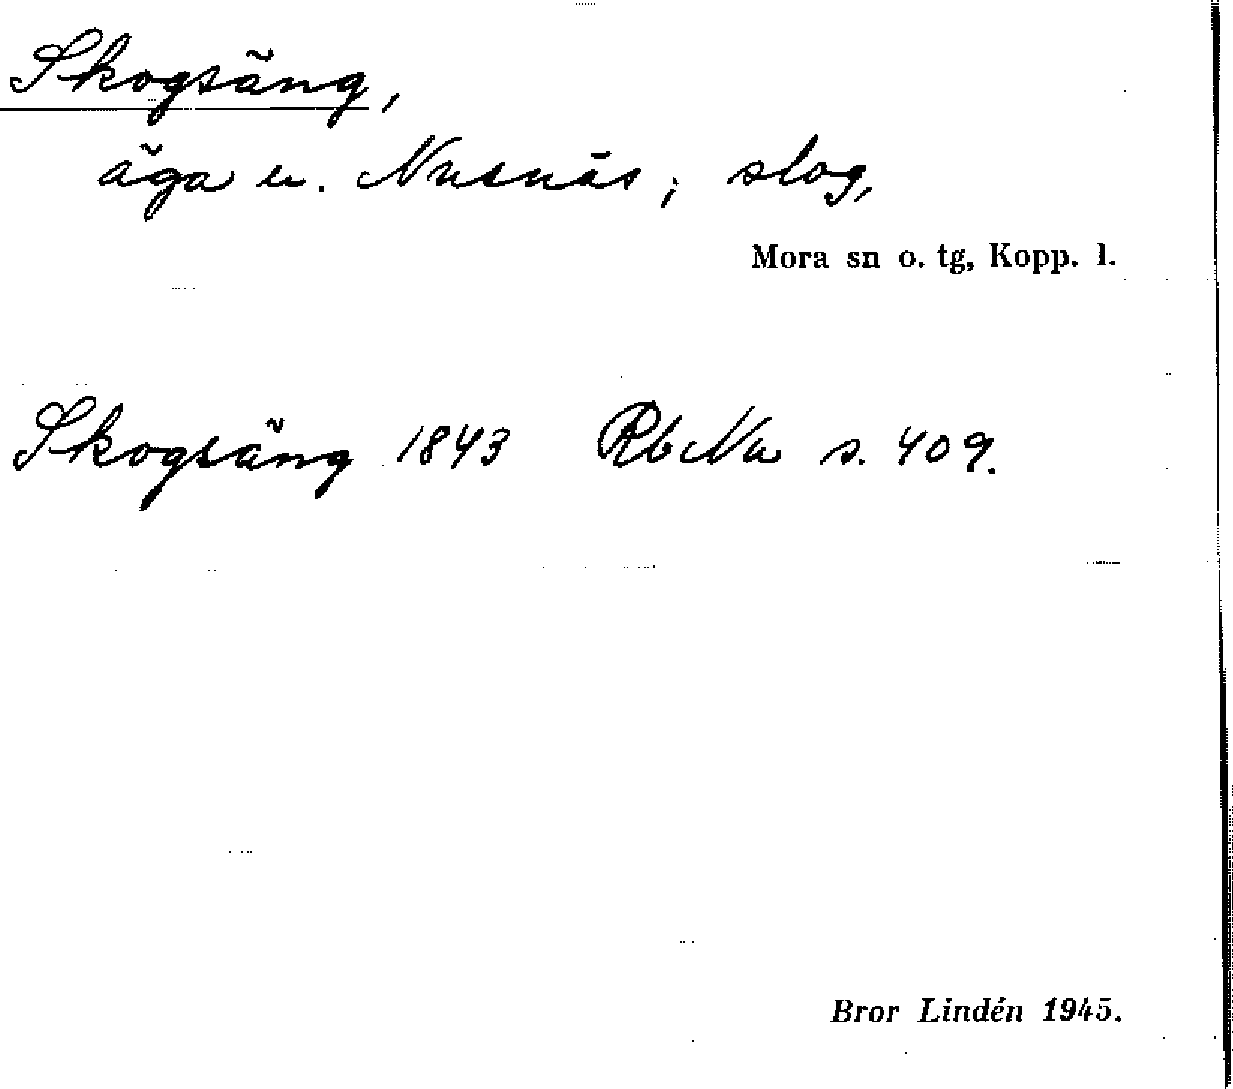 Skogsäng,
äga u. Nusnäs; slog,
Mora sn o. tg, Kopp. l.
Skogsäng 1843 RbNu s. 409.
Bror Lindén 1945.